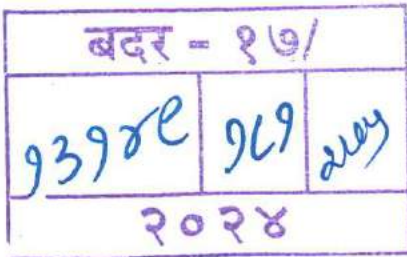 बदर - १७/
१३१४९ १८१
२०२४